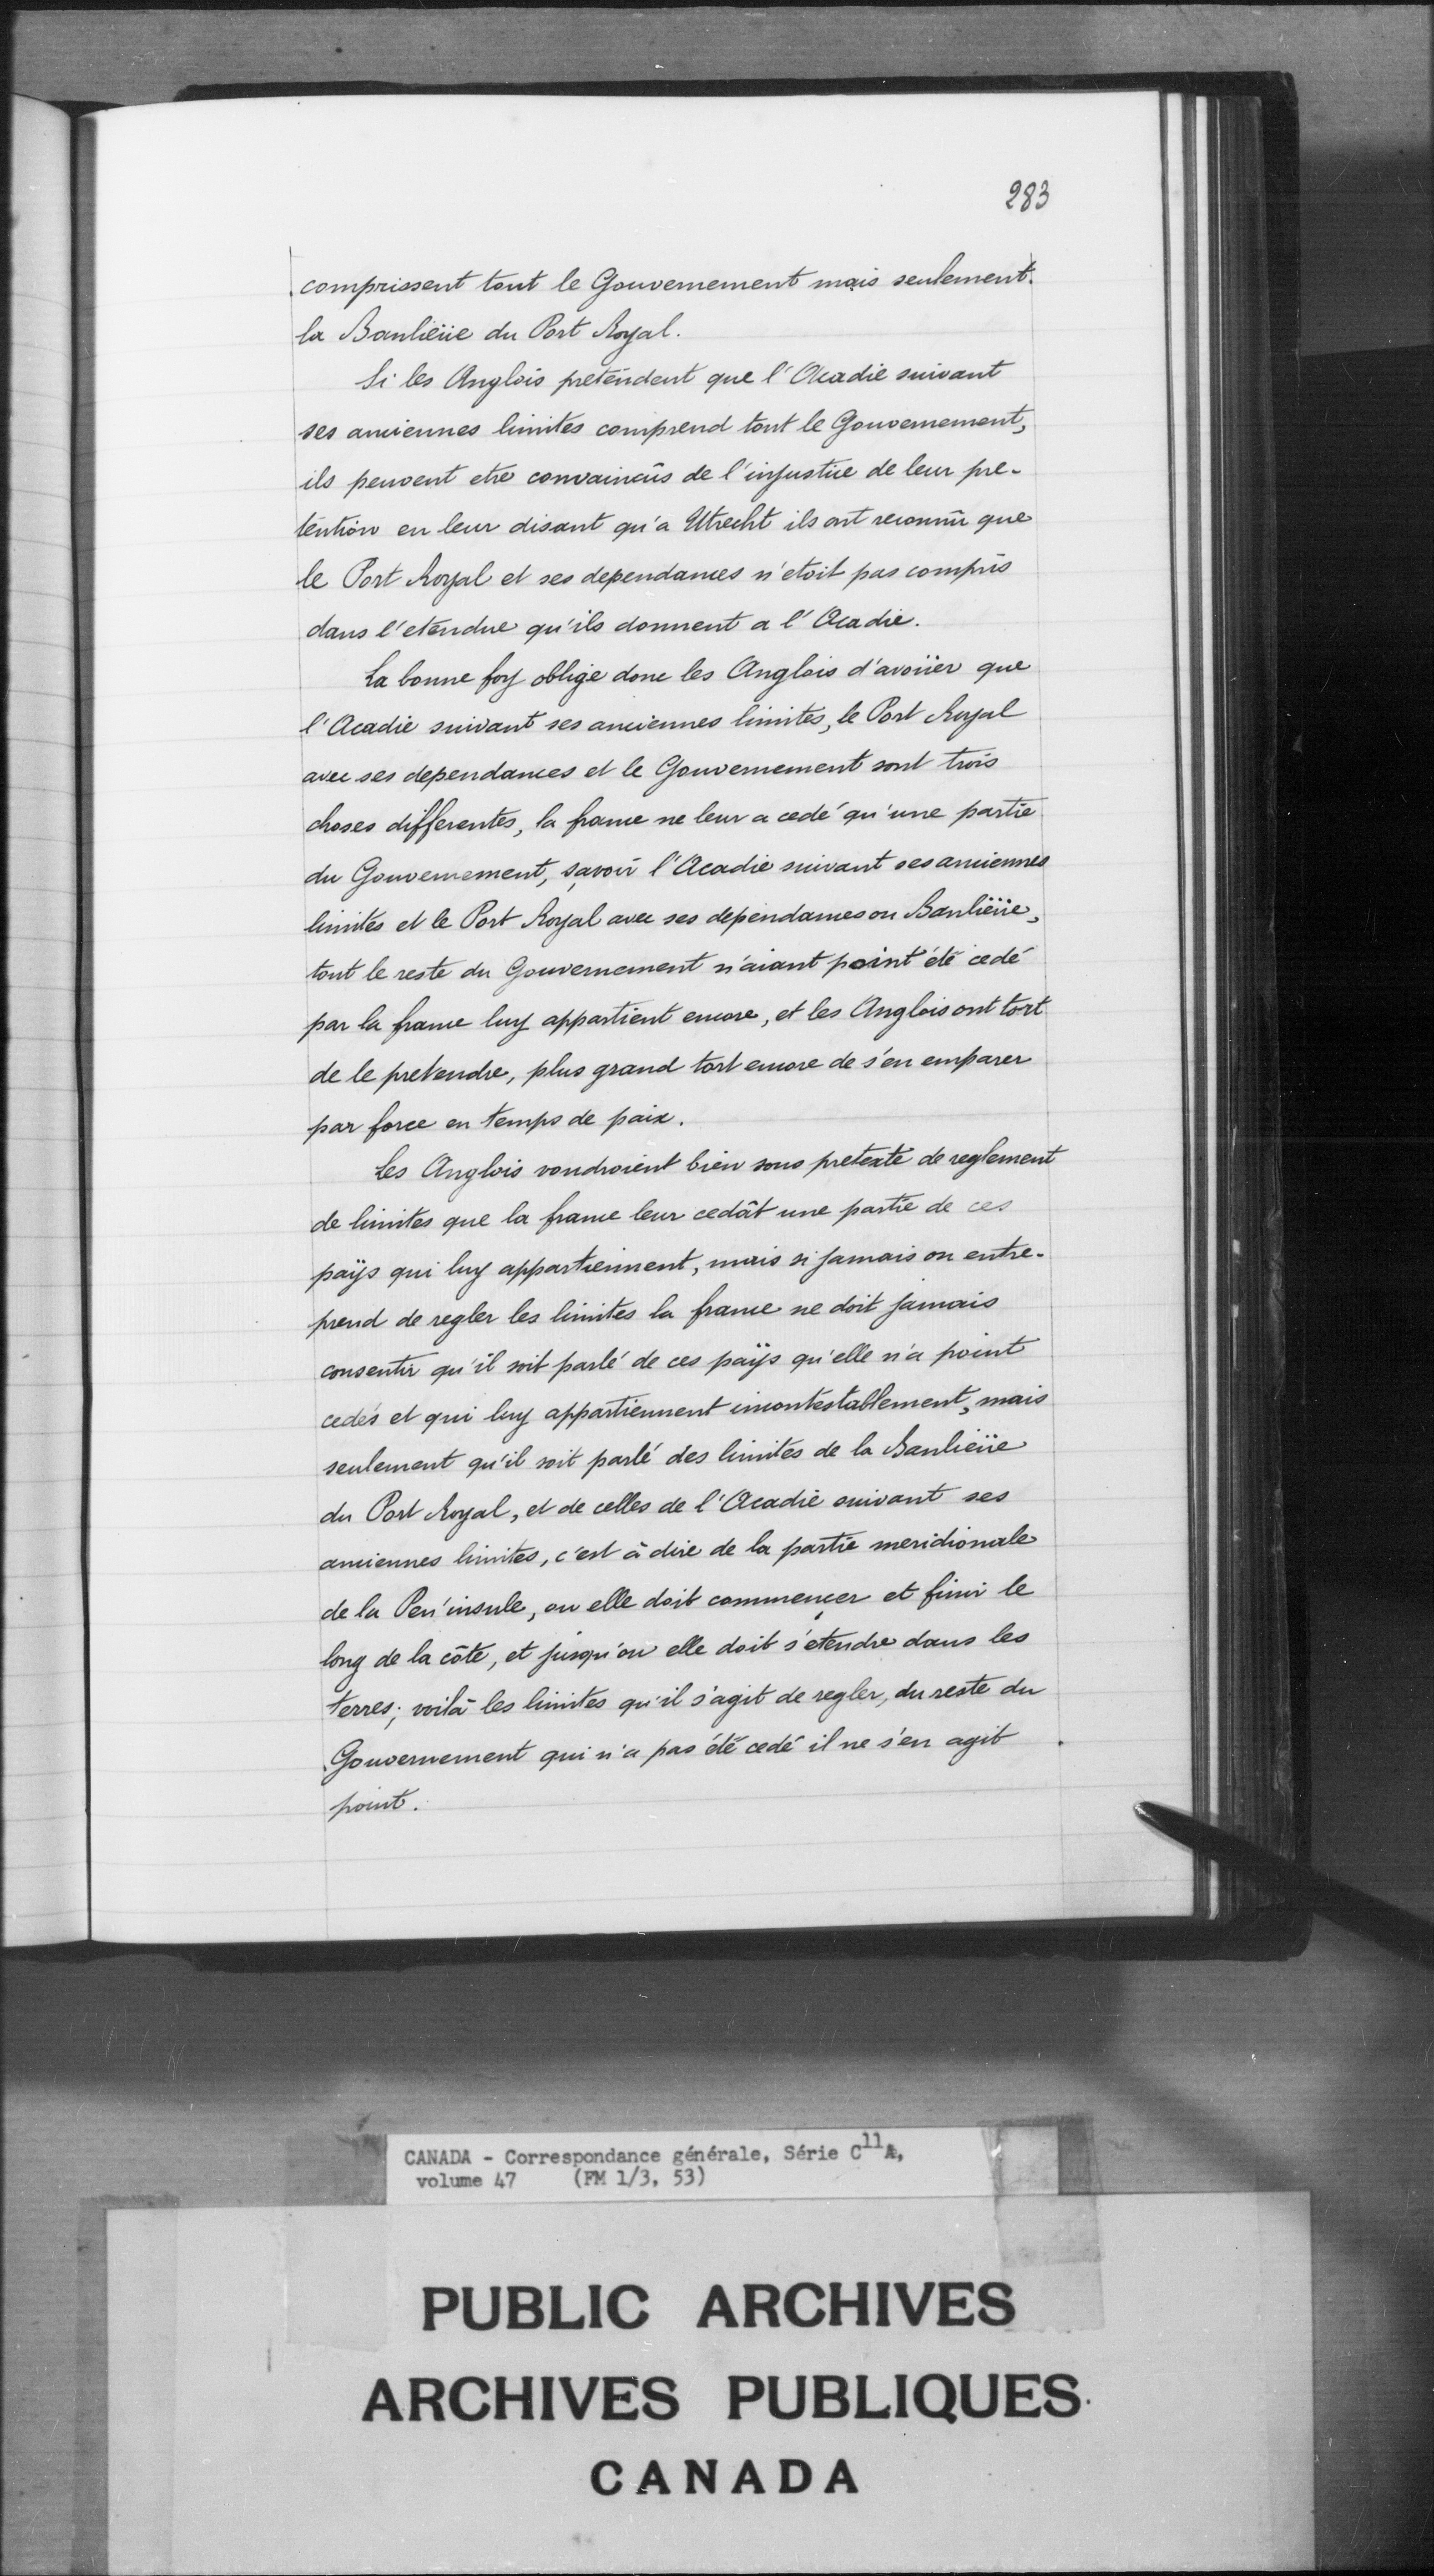 283
comprissent tout le Gouvernement mais seulement
la Banlieüe du Port Royal.
Si les Anglois pretendent que l'Acadie suivant
ses anciennes limites comprend tout le Gouvernement,
ils peuvent etre convaincûs de l'injustice de leur pre-
tention en leur disant qu'a Utrecht ils ont reconnû que
le Port Royal et ses dependances n'etoit pas compris
dans l'etendue qu'ils donnent a l'Acadie.
La bonne foy oblige donc les Anglois d'avoüer que
l'Acadie suivant ses anciennes limites, le Port Royal
avec ses dependances et le Gouvernement sont trois
choses differentes, la france ne leur a cedé qu'une partie
du Gouvernement, sçavoir l'Acadie suivant ses anciennes
limites et le Port Royal avec ses dependances ou Banlieüe,
tout le reste du Gouvernement n'aiant point été cedé
par la france luy appartient encore, et les Anglois ont tort
de le pretendre, plus grand tort encore de s'en emparer
par force en temps de paix.
Les Anglois voudroient bien sous pretexte de reglement
de limites que la france leur cedât une partie de ces
païs qui luy appartiennent, mais si jamais on entre-
prend de regler les limites la france ne doit jamais
consentir qu'il soit parlé de ces païs qu'elle n'a point
cedés et qui luy appartiennent incontestablement, mais
seulement qu'il soit parlé des limites de la Banlieüe
du Port Royal, et de celles de l'Acadie suivant ses
anciennes limites, c'est à dire de la partie meridionale
de la Pen'insule, ou elle doit commençer et finir le
long de la côte, et jusqu'ou elle doit s'etendre dans les
terres; voilà les limites qu'il s'agit de regler, du reste du
Gouvernement qui n'a pas été cedé il ne s'en agit
point.
CANADA - Correspondance générale, Série C11A,
volume 47 (FM 1/3, 53)
PUBLIC ARCHIVES
ARCHIVES PUBLIQUES
CANADA